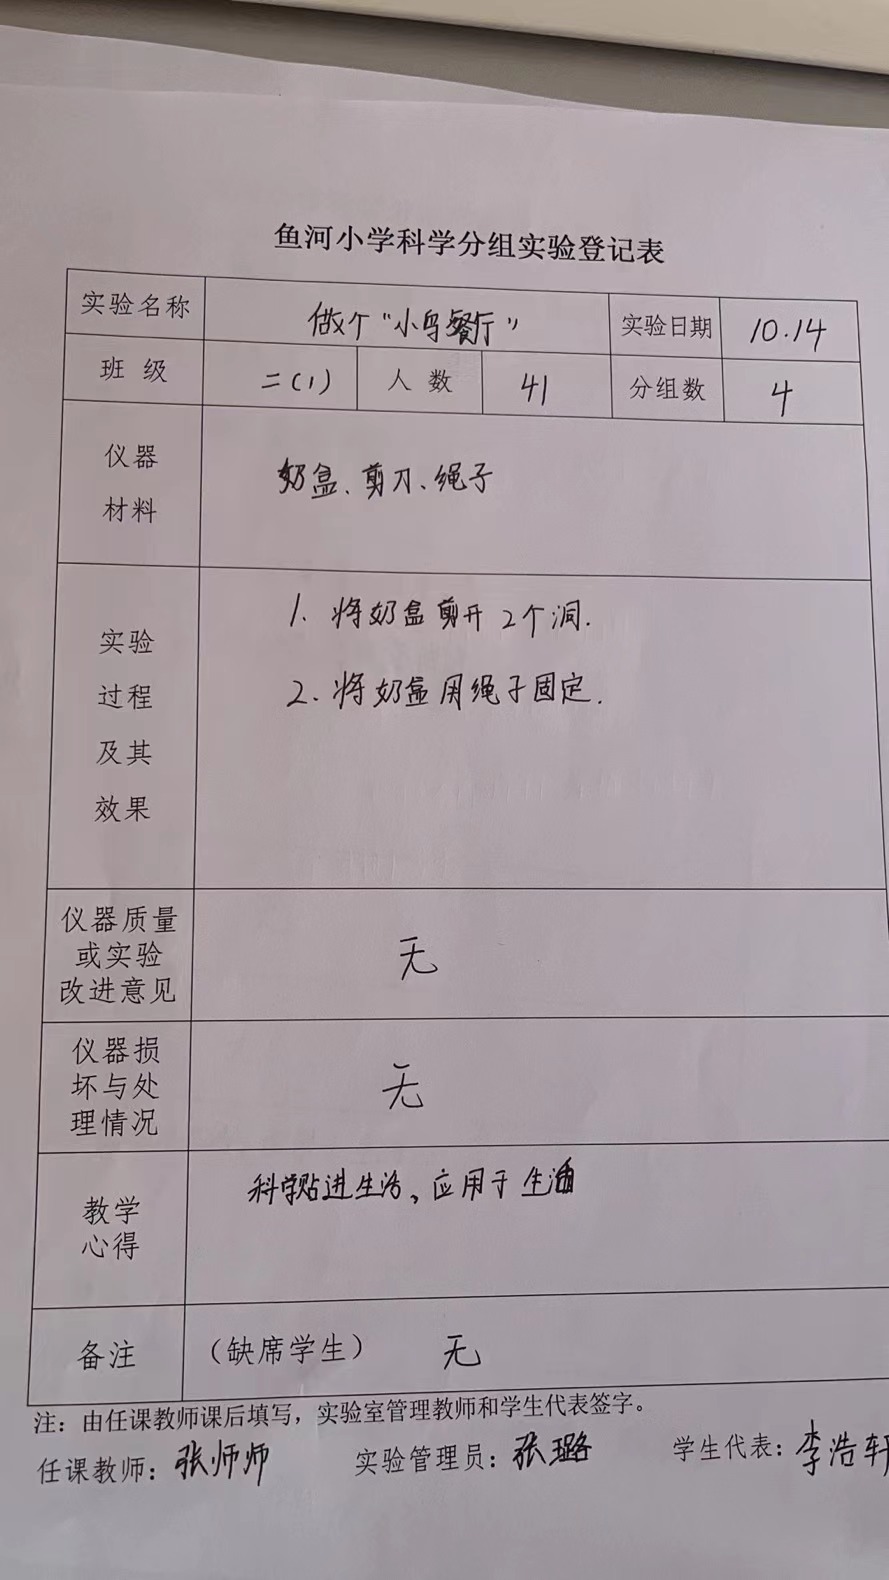 鱼河小学科学分组实验登记表
实验名称 做个“小鸟餐厅” 实验日期 10.14
班 级 二(1) 人 数 41 分组数 4
仪器
材料
奶盒、剪刀、绳子
实验
过程
及其
效果
1. 将奶盒剪开2个洞.
2. 将奶盒用绳子固定.
仪器质量
或实验
改进意见
无
仪器损
坏与处
理情况
无
教学
心得
科学贴进生活,应用于生活
备注 (缺席学生) 无
注：由任课教师课后填写，实验室管理教师和学生代表签字。
任课教师：张师师 实验管理员：张璐 学生代表：李浩轩